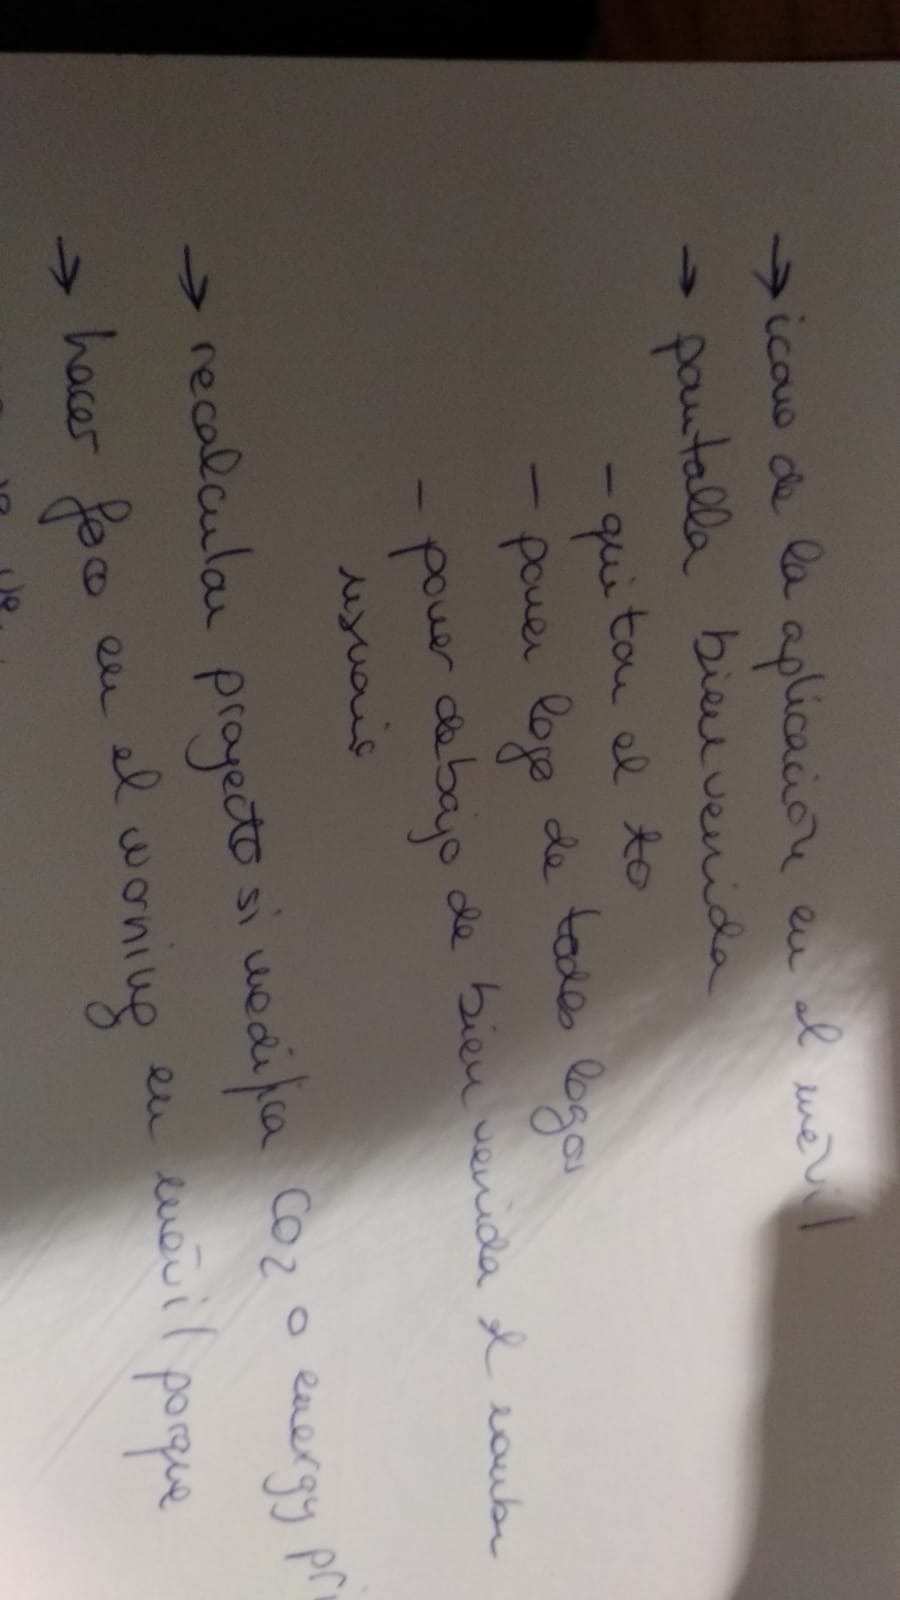 → icono de la aplicación en el móvil
→ pantalla bienvenida
- quitar el to
- poner logo de todos logos
- poner debajo de bienvenida el nombr
usuario
→ recalcular proyecto si modifica CO2 o energy pri
→ hacer foco en el worning en móvil porque
ve